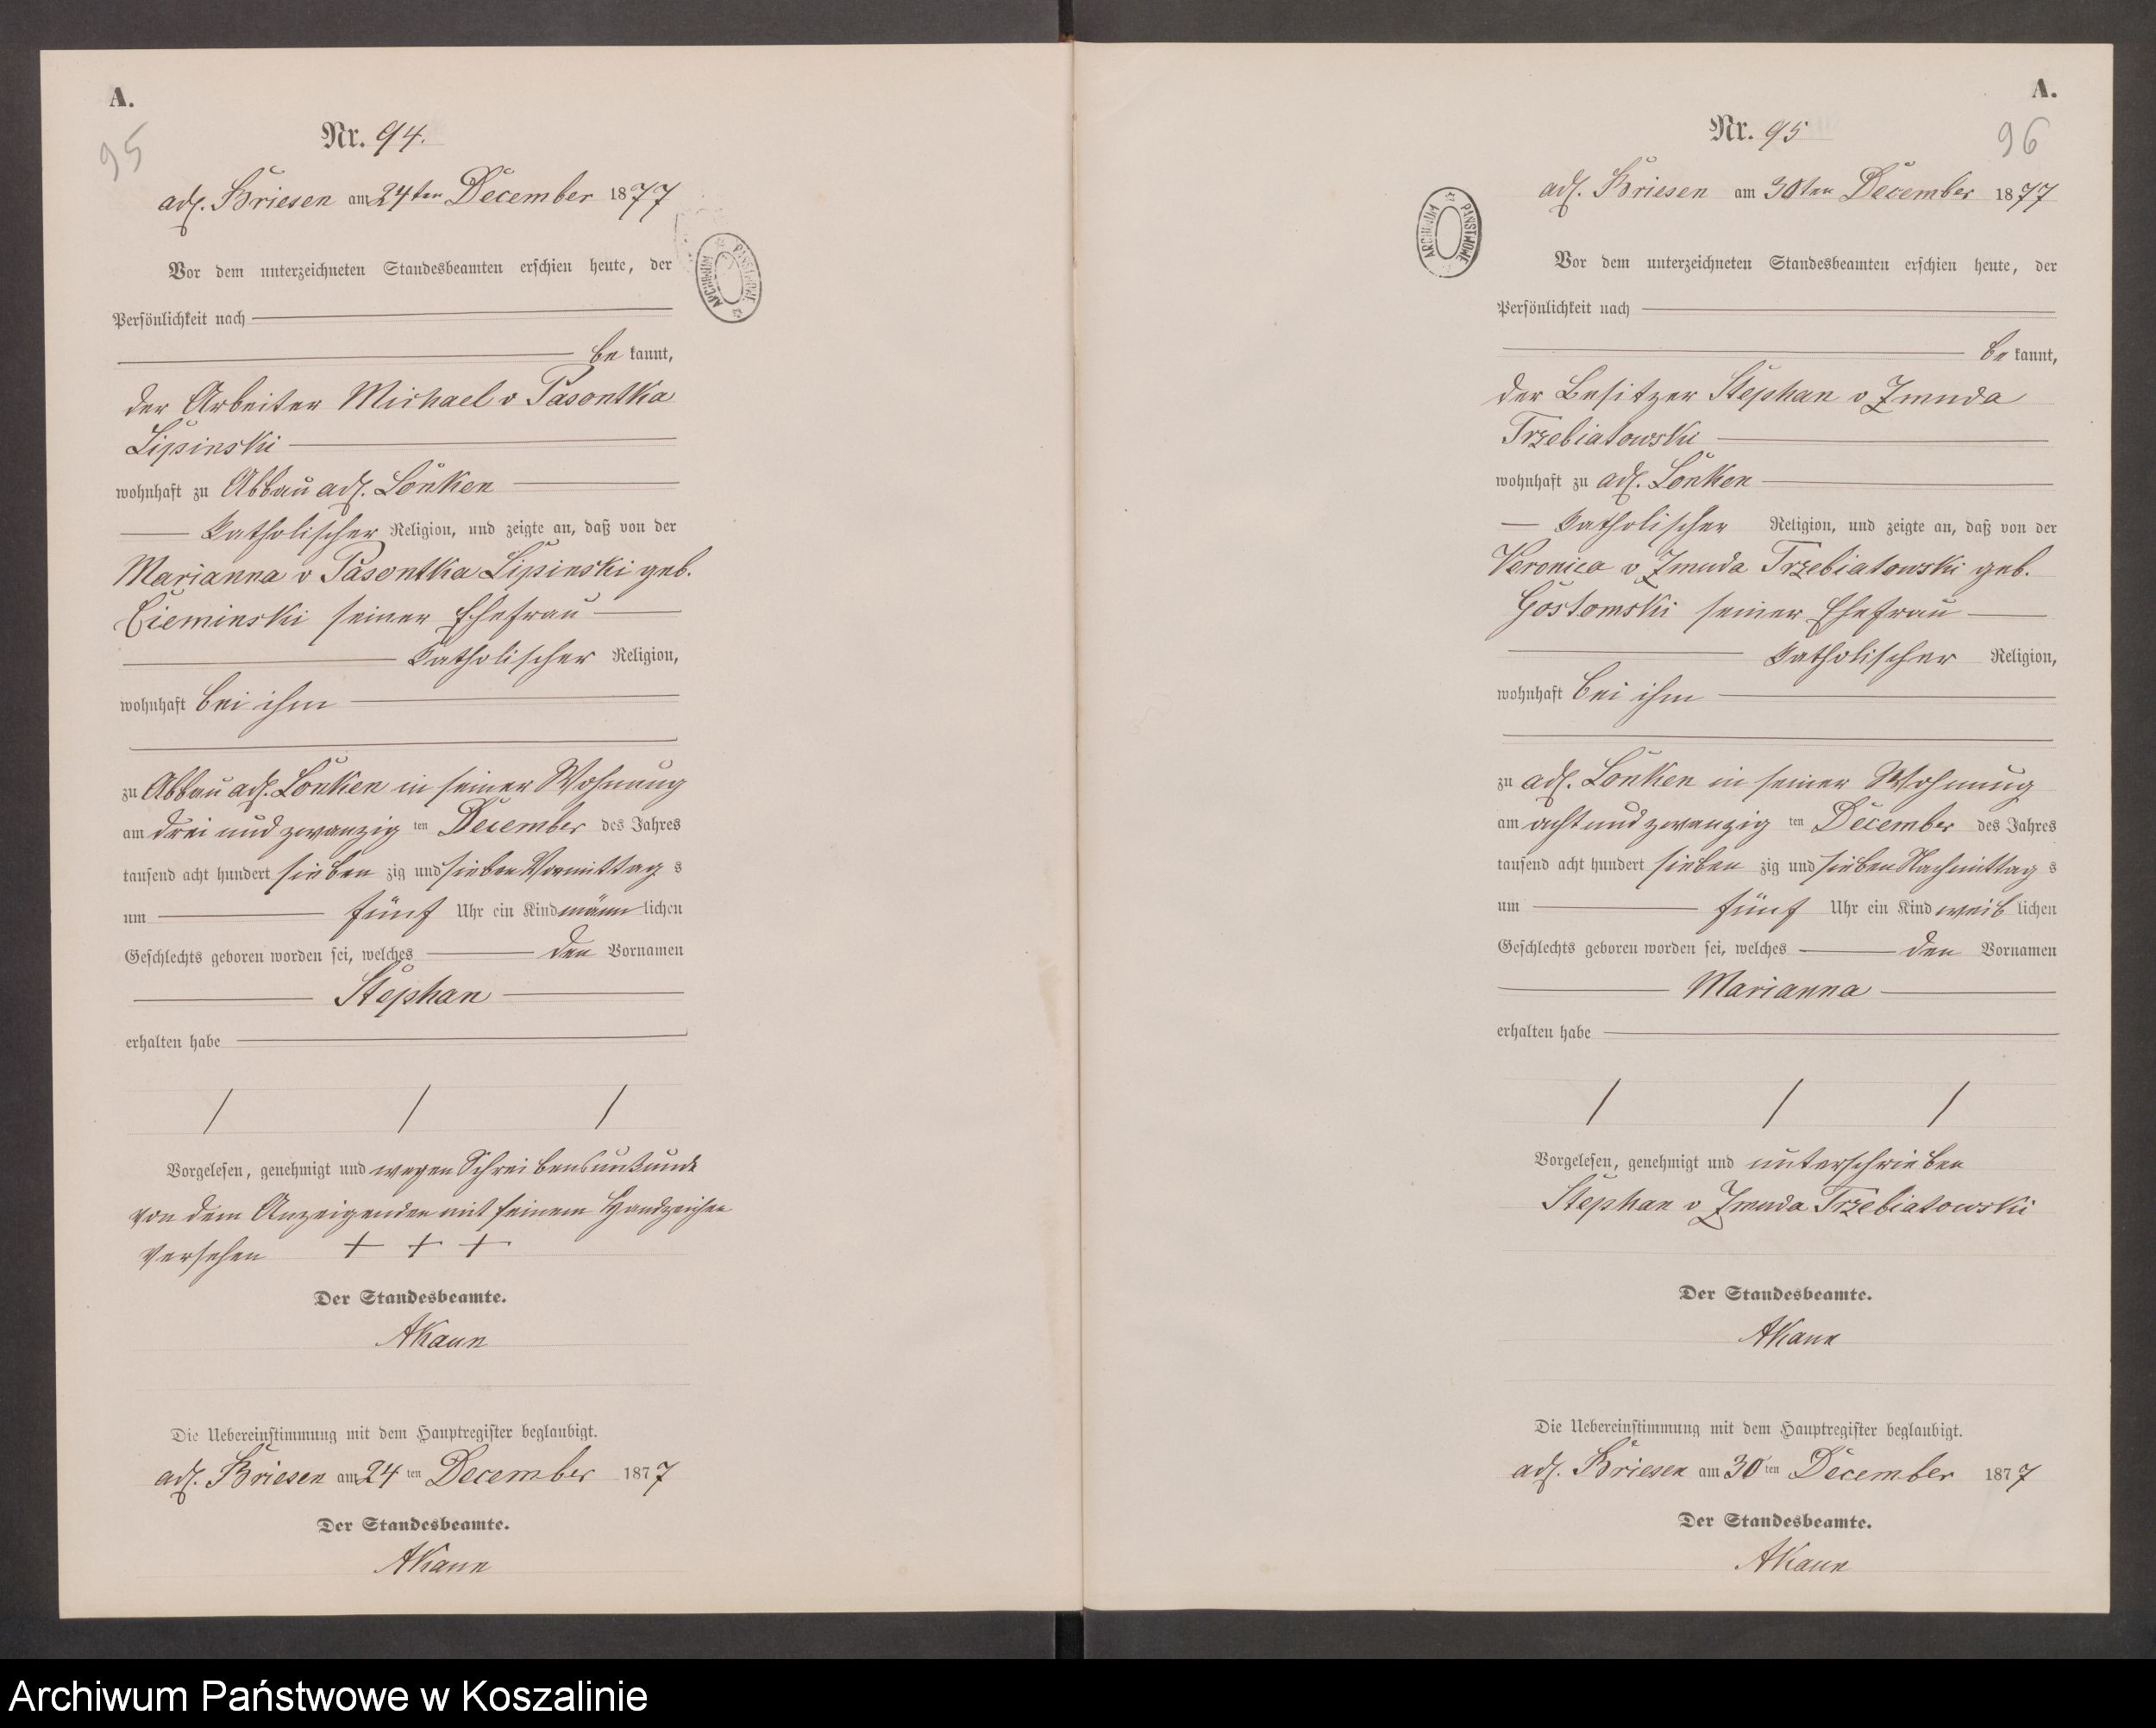 A.
95
Nr. 94.
adl. Briesen am 24ten December 1877
Vor dem unterzeichneten Standesbeamten erschien heute, der
Persönlichkeit nach
be kannt,
der Arbeiter Michael v Pasontka
Lipinski
wohnhaft zu Abbau adl. Lonken
katholischer Religion, und zeigte an, daß von der
Marianna v Pasontka Lipinski geb.
Cieminski seiner Ehefrau
katholischer Religion,
wohnhaft bei ihm
zu Abbau adl. Lonken in seiner Wohnung
am drei und zwanzig ten December des Jahres
tausend acht hundert sieben zig und sieben Vormittag s
um fünf Uhr ein Kind männ lichen
Geschlechts geboren worden sei, welches den Vornamen
Stephan
erhalten habe
Vorgelesen, genehmigt und wegen Schreibensunkunde
von dem Anzeigenden mit seinem Handzeichen
versehen + + +
Der Standesbeamte.
AKaun
Die Uebereinstimmung mit dem Hauptregister beglaubigt.
adl. Briesen am 24 ten December 1877
Der Standesbeamte.
AKaun
ARCHIWUM PAŃSTWOWE
A.
96
Nr. 95
adl. Briesen am 30ten December 1877
ARCHIWUM PAŃSTWOWE
Vor dem unterzeichneten Standesbeamten erschien heute, der
Persönlichkeit nach
be kannt,
der Besitzer Stephan v Zmuda
Trzebiatowski
wohnhaft zu adl. Lonken
katholischer Religion, und zeigte an, daß von der
Veronica v Zmuda Trzebiatowski geb.
Gostomski seiner Ehefrau
katholischer Religion,
wohnhaft bei ihm
zu adl. Lonken in seiner Wohnung
am acht und zwanzig ten December des Jahres
tausend acht hundert sieben zig und sieben Nachmittag s
um fünf Uhr ein Kind weib lichen
Geschlechts geboren worden sei, welches den Vornamen
Marianna
erhalten habe
Vorgelesen, genehmigt und unterschrieben
Stephan v Zmuda Trzebiatowski
Der Standesbeamte.
AKaun
Die Uebereinstimmung mit dem Hauptregister beglaubigt.
adl. Briesen am 30 ten December 1877
Der Standesbeamte.
AKaun
Archiwum Państwowe w Koszalinie